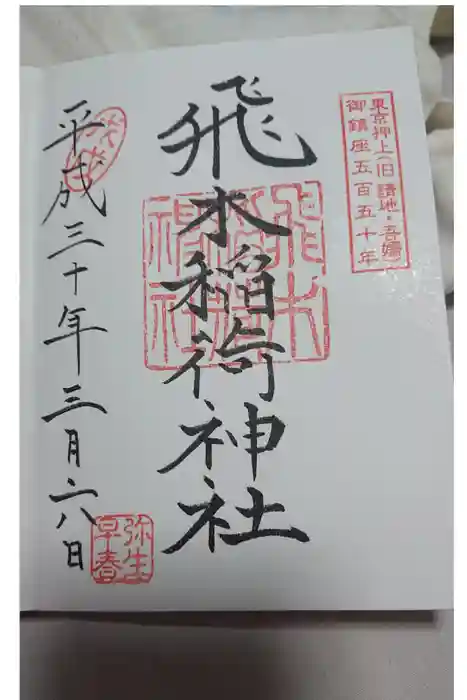 東京押上(旧請地・吾嬬)
御鎮座五百五十年
飛木稲荷神社
飛木
稲荷
神社
平成三十年三月六日
弥生
早春